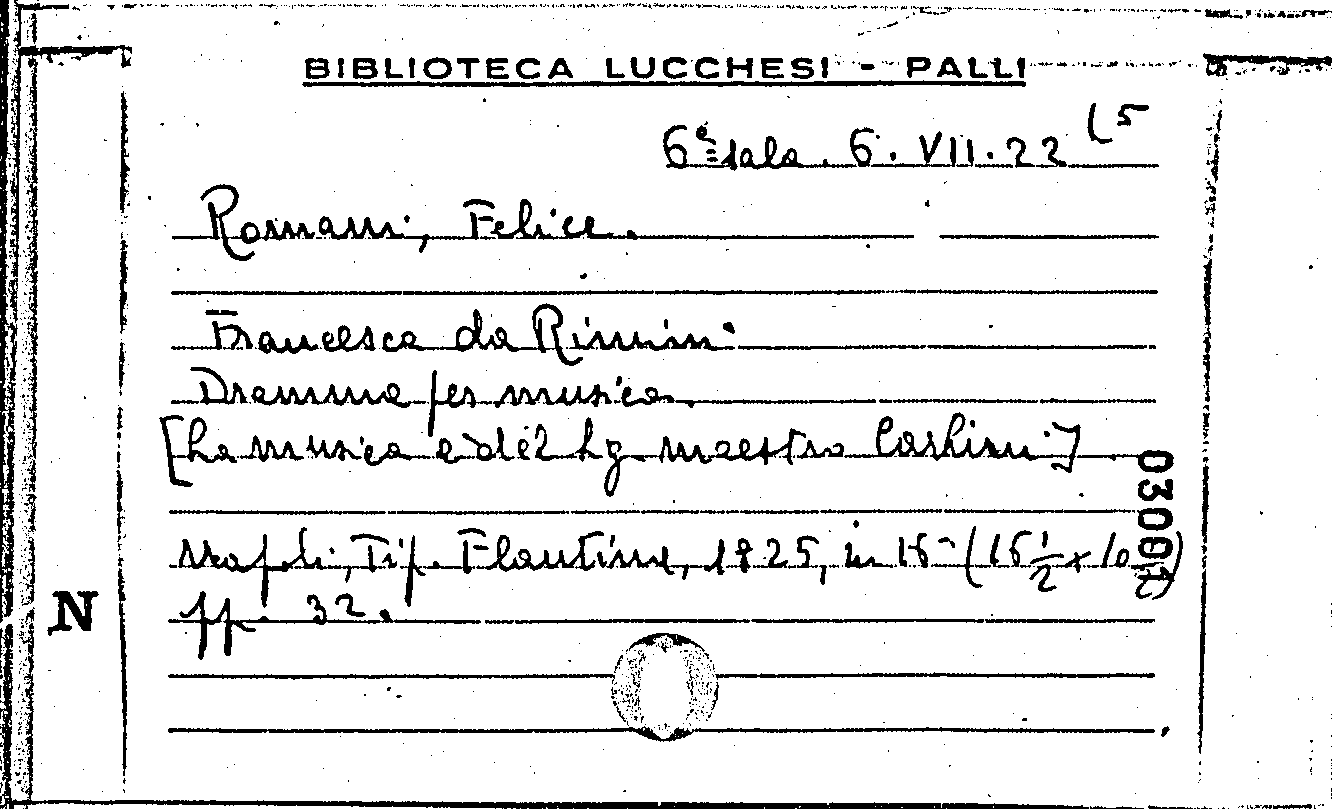 BIBLIOTECA LUCCHESI - PALLI
6ª sala. 6. VII. 22 (5
Romani, Felice.
Francesca da Rimini
Dramma per musica.
[La musica è del Sg. maestro Carlini]
Napoli, Tip. Flautina, 1825, in 16° (16 1/2 x 10
pp. 32.
N